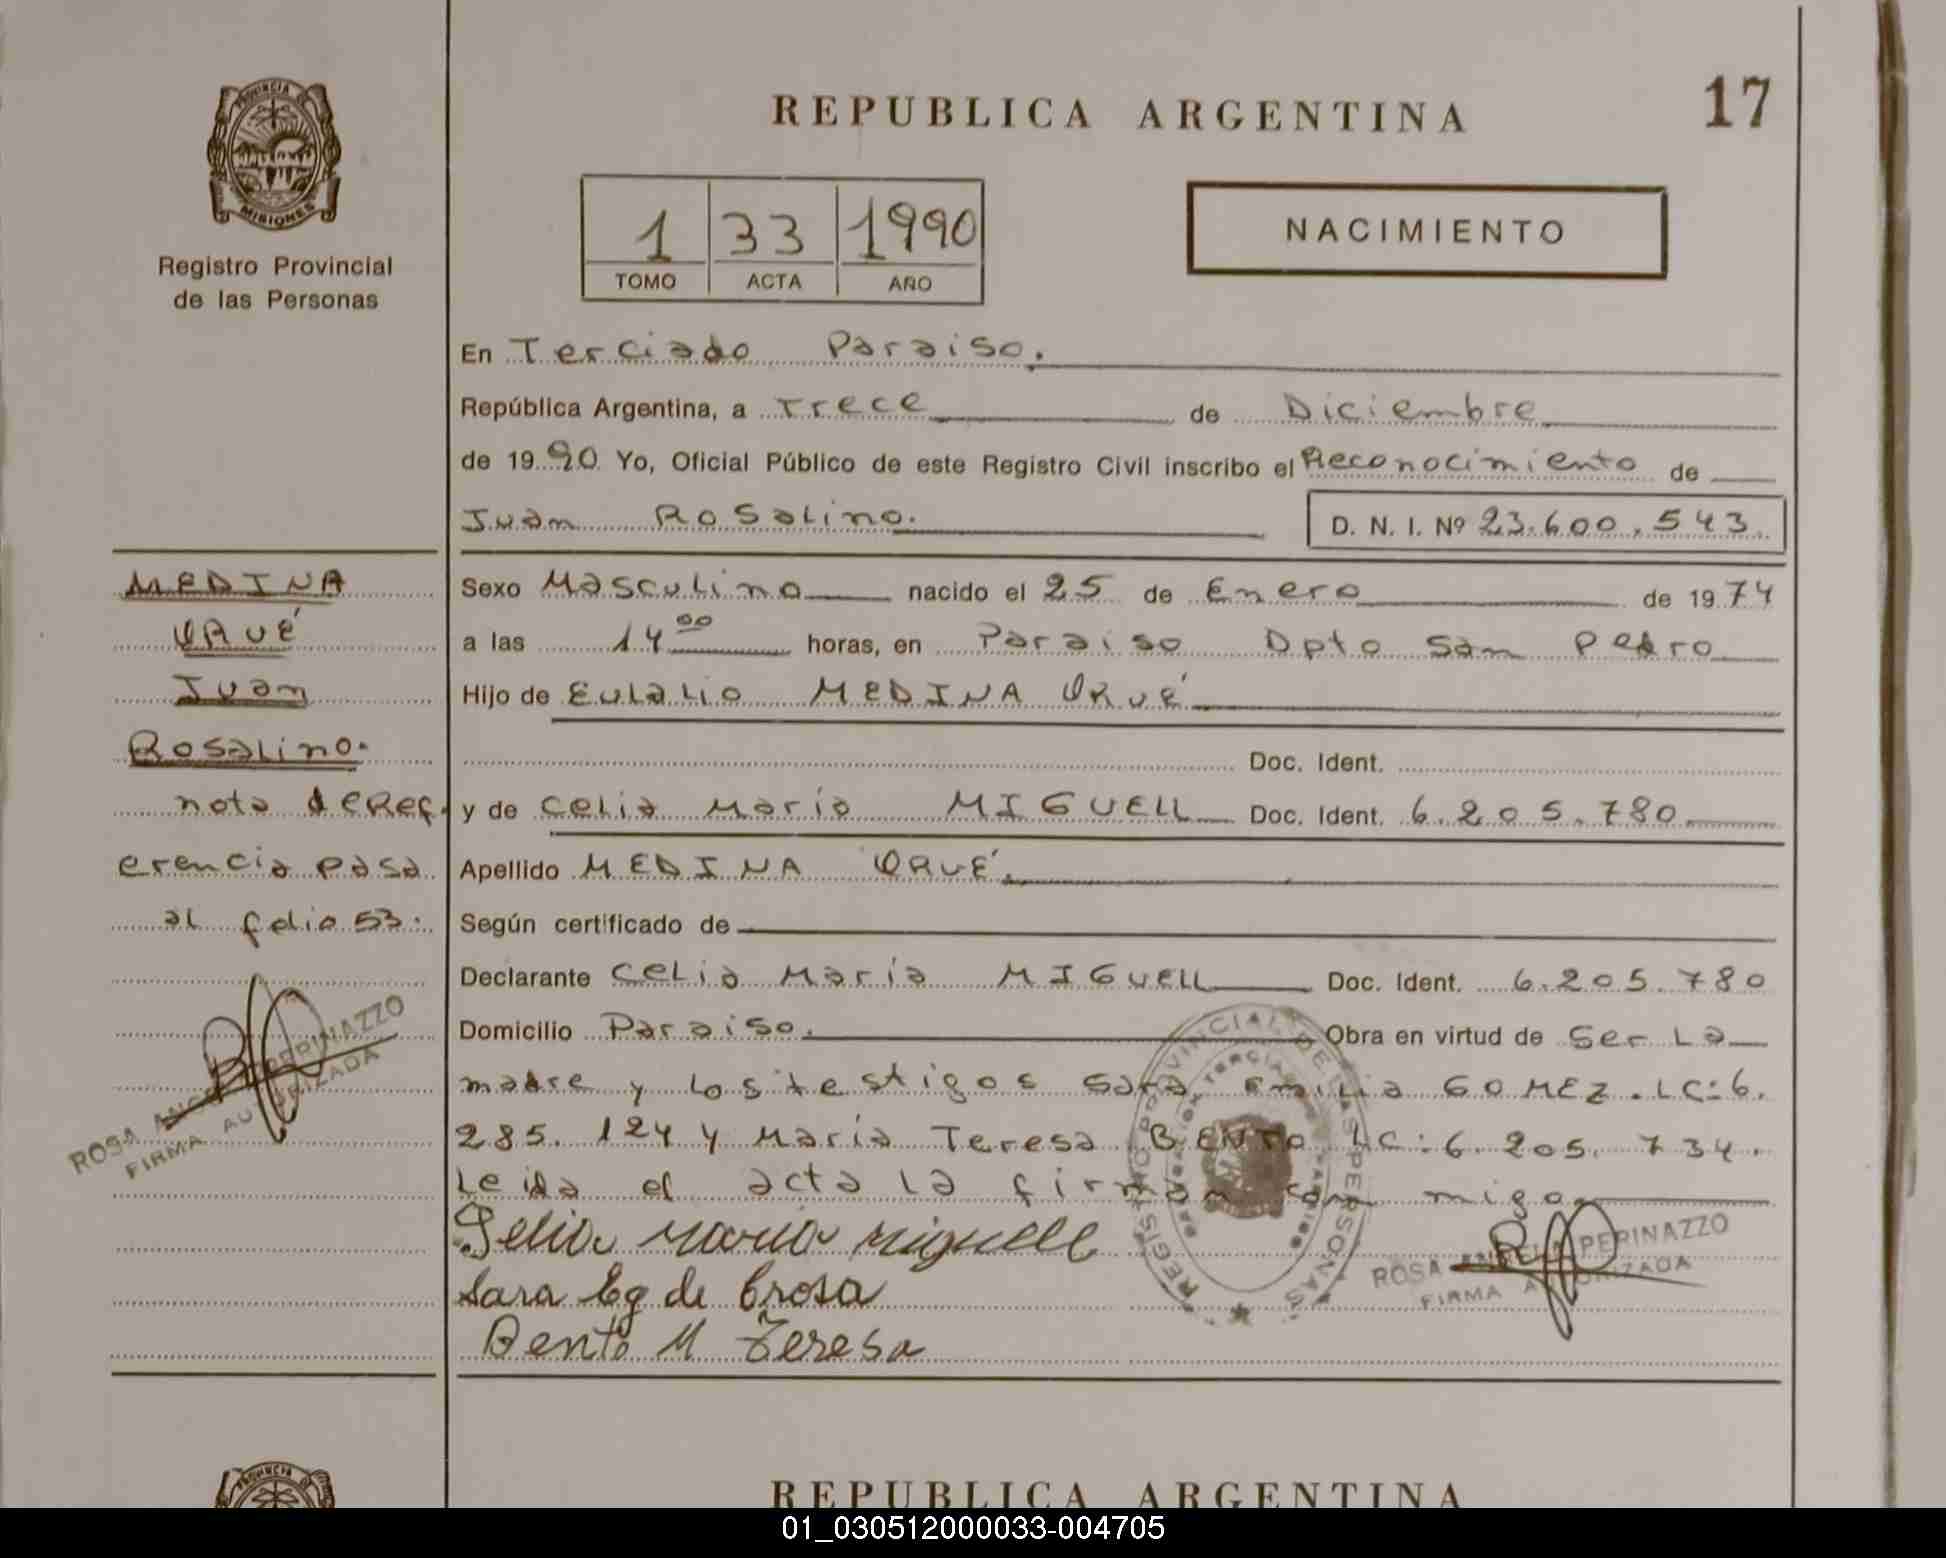 PROVINCIA DE
MISIONES
Registro Provincial
de las Personas
REPUBLICA ARGENTINA
17
1 33 1990
TOMO ACTA AÑO
NACIMIENTO
En Terciado Paraiso.
República Argentina, a Trece de Diciembre
de 1990 Yo, Oficial Público de este Registro Civil inscribo el Reconocimiento de
Juan Rosalino.
D. N. I. Nº 23.600.543.
MEDINA
ORUÉ
Juan
Rosalino.
nota de Ref.
erencia pasa
al folio 53:
ROSA ANGELA PERINAZZO
FIRMA AUTORIZADA
Sexo Masculino nacido el 25 de Enero de 1974
a las 14 00 horas, en Paraiso Dpto San Pedro
Hijo de Eulalio MEDINA ORUÉ
Doc. Ident.
y de Celia María MIGUELL Doc. Ident. 6.205.780
Apellido MEDINA ORUÉ.
Según certificado de
Declarante Celia María MIGUELL Doc. Ident. 6.205.780
Domicilio Paraiso. Obra en virtud de Ser La
madre y los testigos Sara Emilia GOMEZ. LC: 6.
285.124 y María Teresa BENTO LC: 6.205.734.
Leida el acta la firman con migo
Celia María Miguell
Sara Eg de Crosa
Bento M Teresa
REGISTRO PROVINCIAL DE LAS PERSONAS
ROSA ANGELA PERINAZZO
FIRMA AUTORIZADA
PROVINCIA DE
REPUBLICA ARGENTINA
01_030512000033-004705